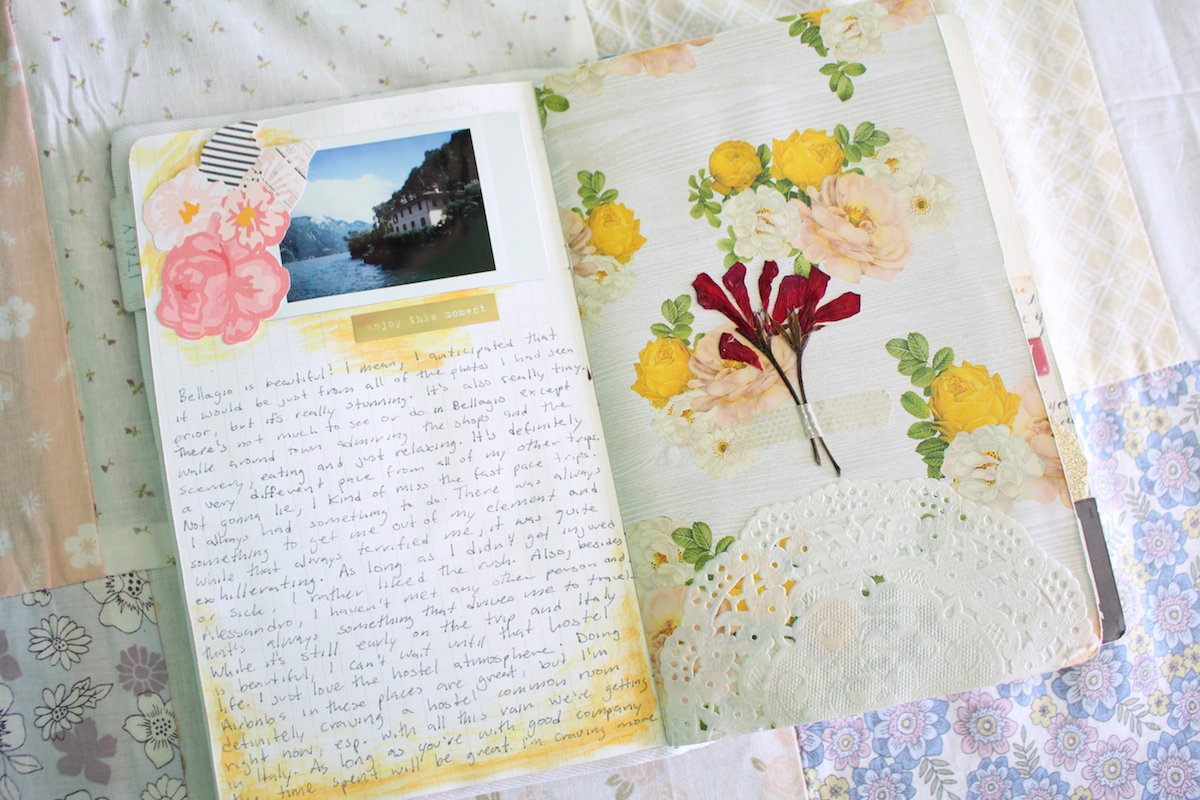 ITALY
enjoy this moment
Bellagio is beautiful! I mean, I anticipated that
it would be just from all of the photos I had seen
prior, but it's really stunning. It's also really tiny.
There's not much to see or do in Bellagio except
walk around town admiring the shops and the
scenery, eating and just relaxing. It's definitely
a very different pace from all of my other trips.
Not gonna lie, I kind of miss the fast pace trips.
I always had something to do. There was always
something to get me out of my element and
while that always terrified me, it was quite
exhillerating. As long as I didn't get injured
or sick, I rather liked the rush. Also, besides
Alessandro, I haven't met any other person and
that's always something that drives me to travel.
While it's still early on the trip and Italy
is beautiful, I can't wait until that hostel
life. I just love the hostel atmosphere. Doing
Airbnbs in these places are great, but I'm
definitely craving a hostel common room
right now, esp. with all this rain we're getting
in Italy. As long as you're with good company
time spent will be great. I'm craving more